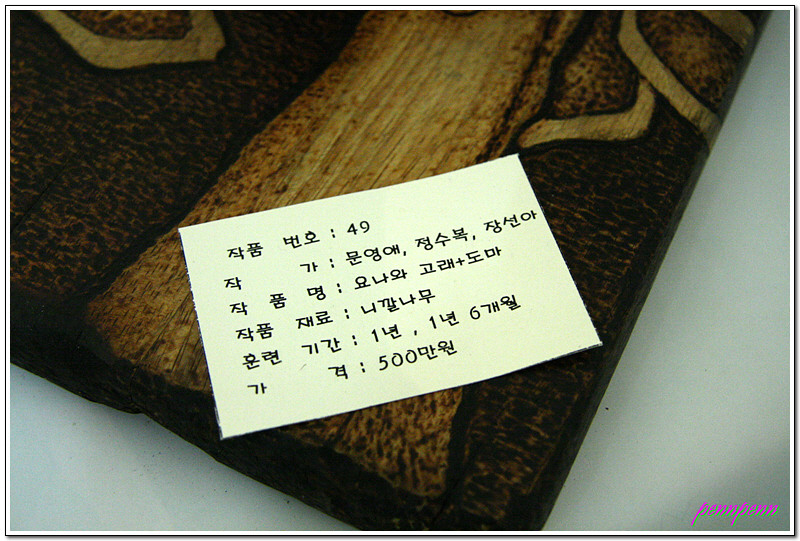 작품 번호 : 49
작 가 : 문영애, 정수복, 장선아
작 품 명 : 요나와 고래+도마
작품 재료 : 니깔나무
훈련 기간 : 1년 , 1년 6개월
가 격 : 500만원
pennpenn